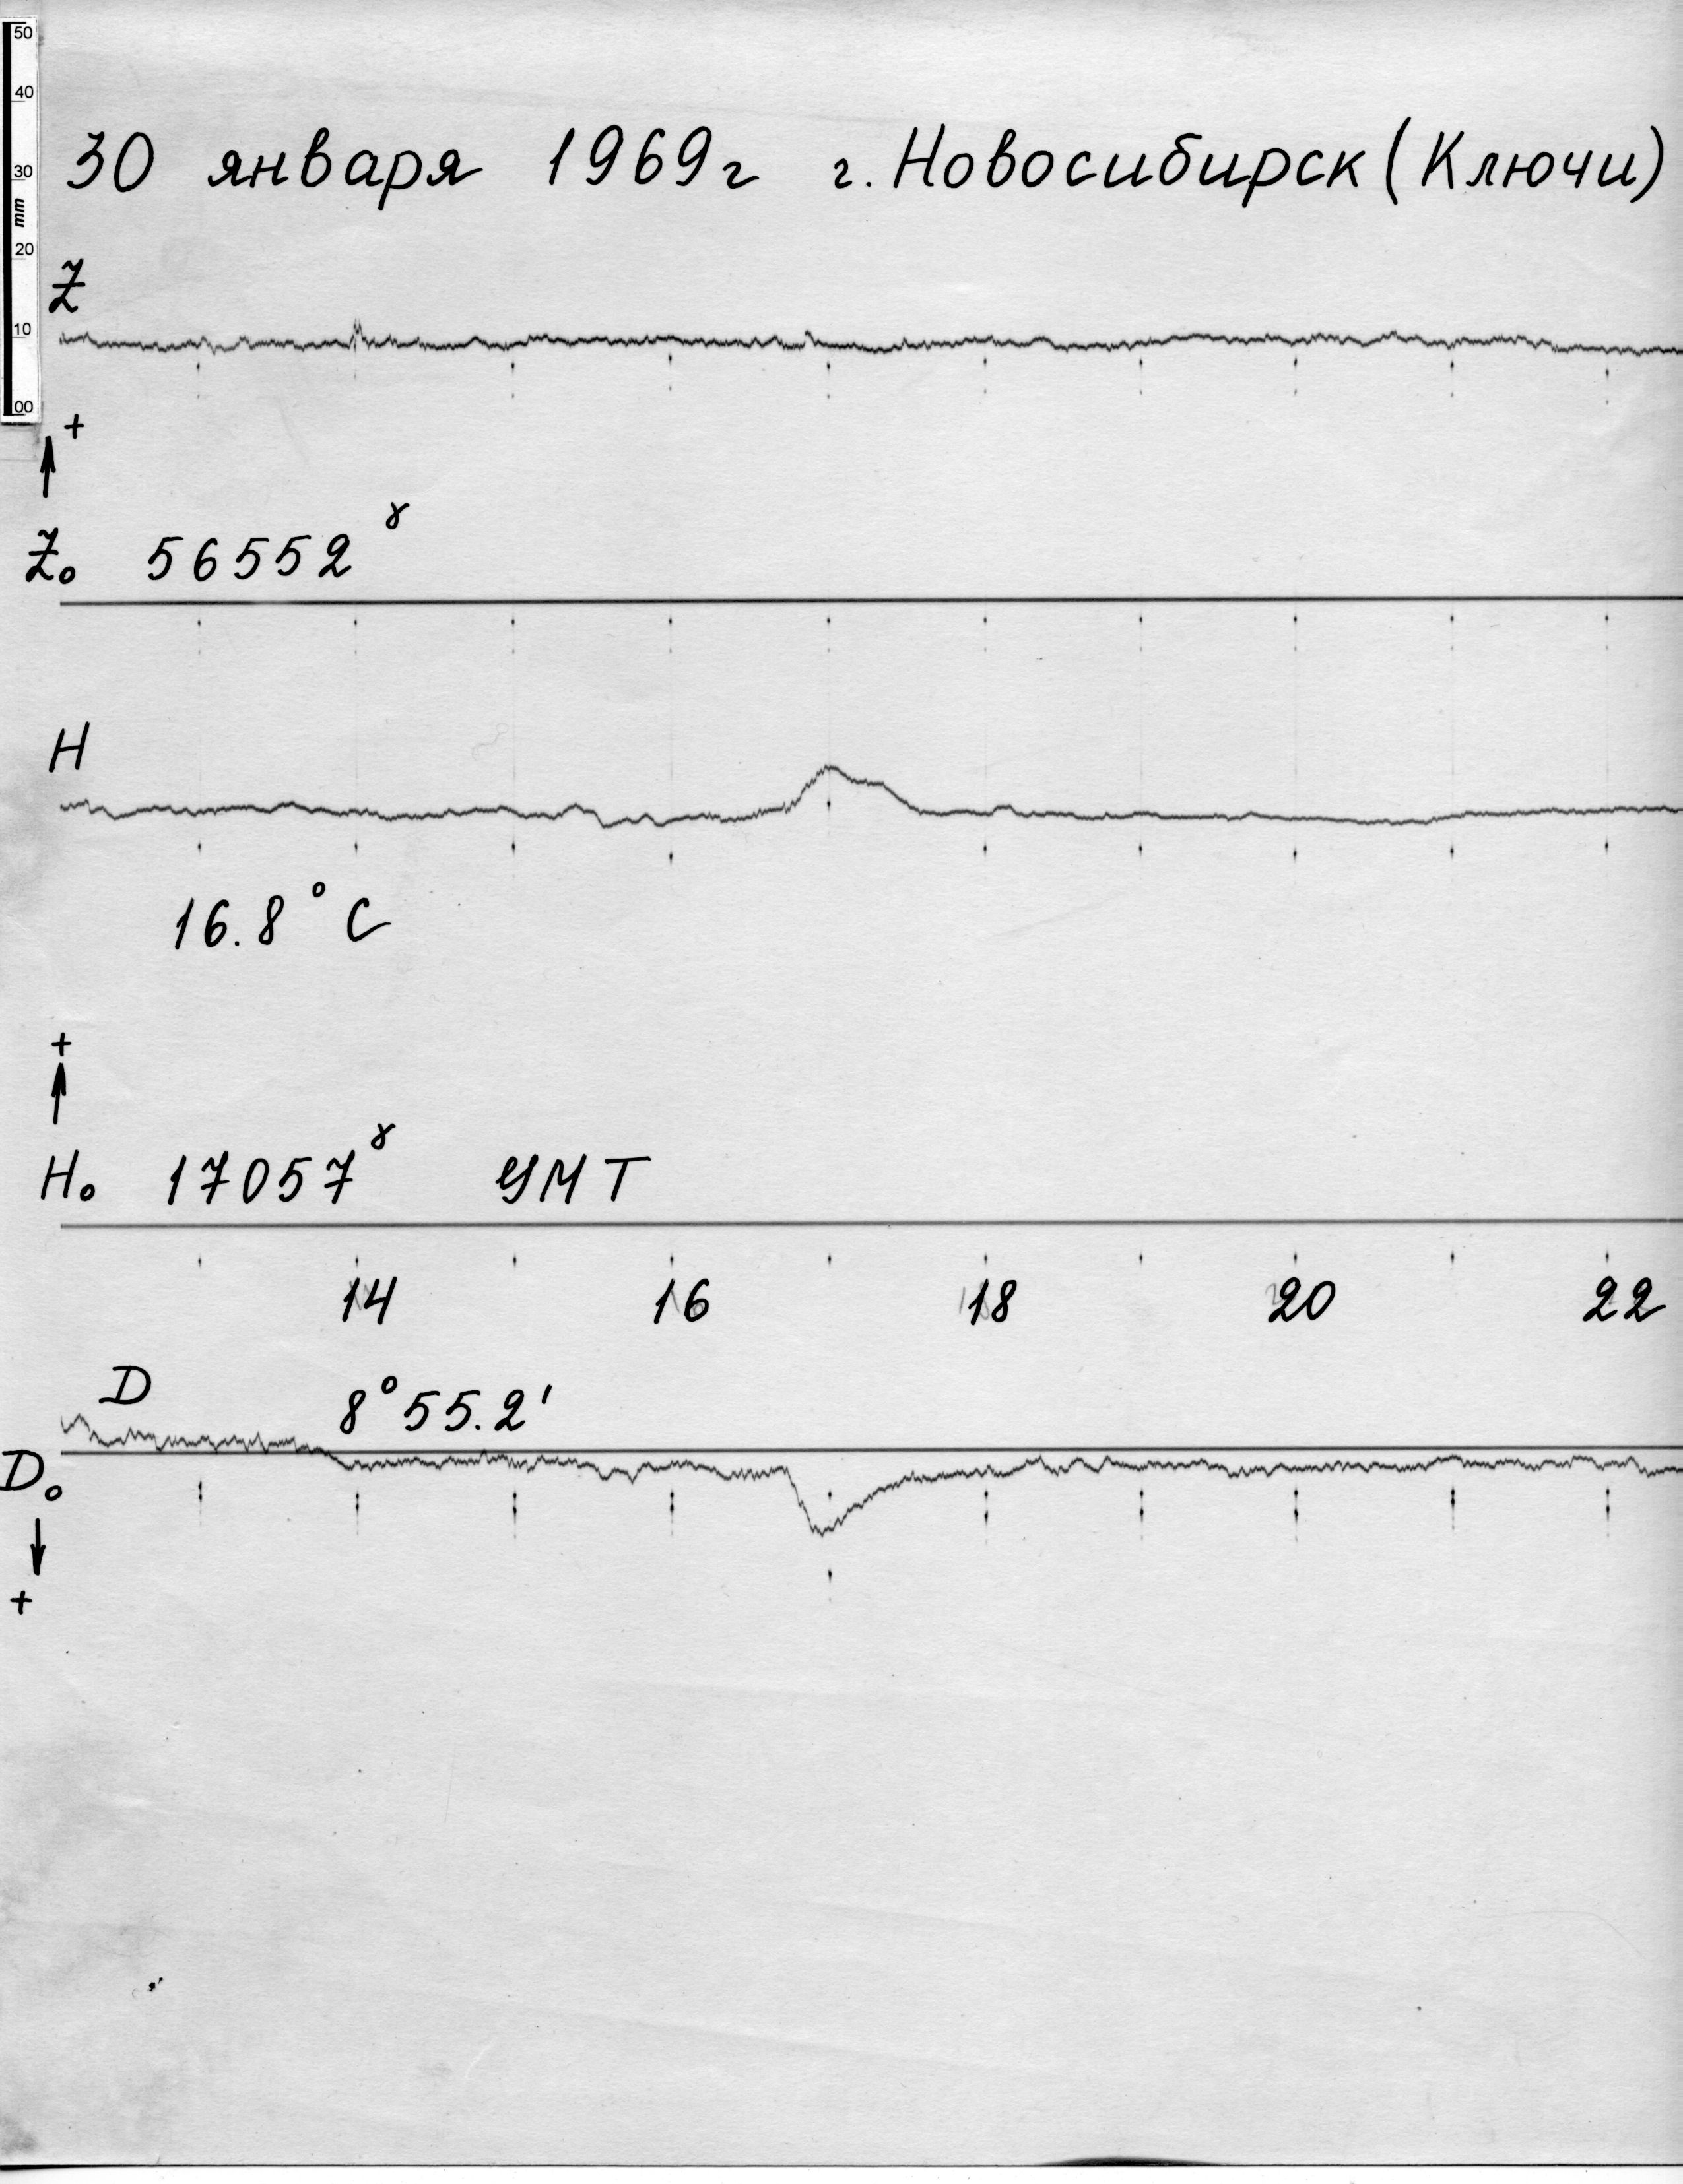 50
40
30 января 1969г г. Новосибирск (Ключи)
30
mm
20
Z
10
00
+
Z₀ 56552 ɣ
H
16.8° C
+
H₀ 17057 ɣ УМТ
14 16 18 20 22
D 8° 55.2'
D₀
+